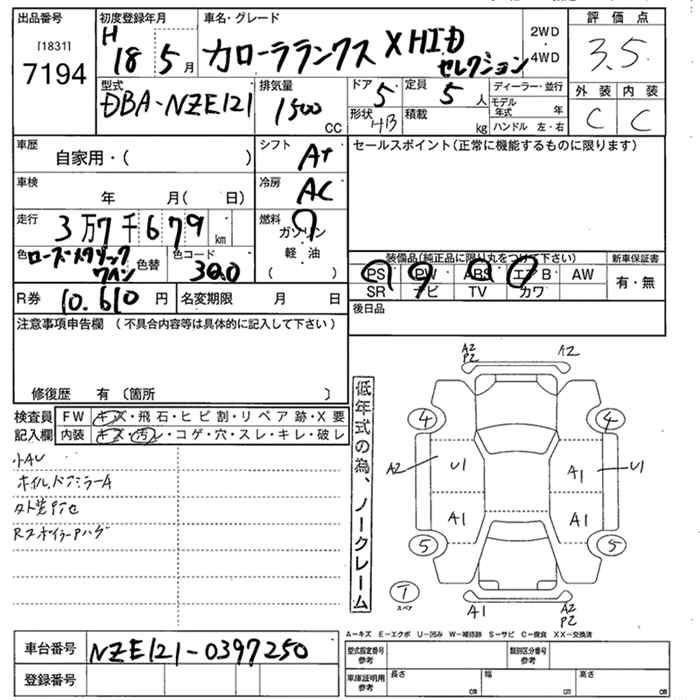 出品番号 初度登録年月 車名・グレード 評価点
[1831] H 18 5月 カローラランクス X HID セレクション 2WD・4WD 3.5
7194
型式 排気量 ドア 5 定員 5人 ディーラー・並行 外装 内装
DBA-NZE121 1500 CC 形状 HB 積載 kg モデル年式 年 C C
ハンドル 左・右
車歴 自家用・( ) シフト AT セールスポイント(正常に機能するものに限ります)
車検 年 月( 日) 冷房 AC
走行 3万7千679km 燃料 ガソリン
軽・油
( )
色 ローズメタリック ワイン 色替 色コード 3Q0
装備品(純正品に限り丸をつけ下さい) 新車保証書
PS PW ABS エアB AW 有・無
SR ナビ TV カワ
R券 10,610円 名変期限 月 日 後日品
注意事項申告欄 (不具合内容等は具体的に記入して下さい)
修復歴 有〔箇所 〕
検査員 FW キズ・飛石・ヒビ割・リペア跡・X要
記入欄 内装 キズ・汚レ・コゲ・穴・スレ・キレ・破レ
小AU
ホイル、ドアミラーA
タト苎
Rスポイラー
低年式の為、ノークレーム
A2
P2
A2
4
4
A2
U1
A1
U1
A1
A1
5
5
T
スペア
A1
A2
P2
A-キズ E-エクボ U-凹み W-補修跡 S-サビ C-腐食 XX-交換済
車台番号 NZE121-0397250
登録番号
型式指定番号 参考 類別区分番号 参考
車庫証明用 参考 長さ cm 幅 cm 高さ cm